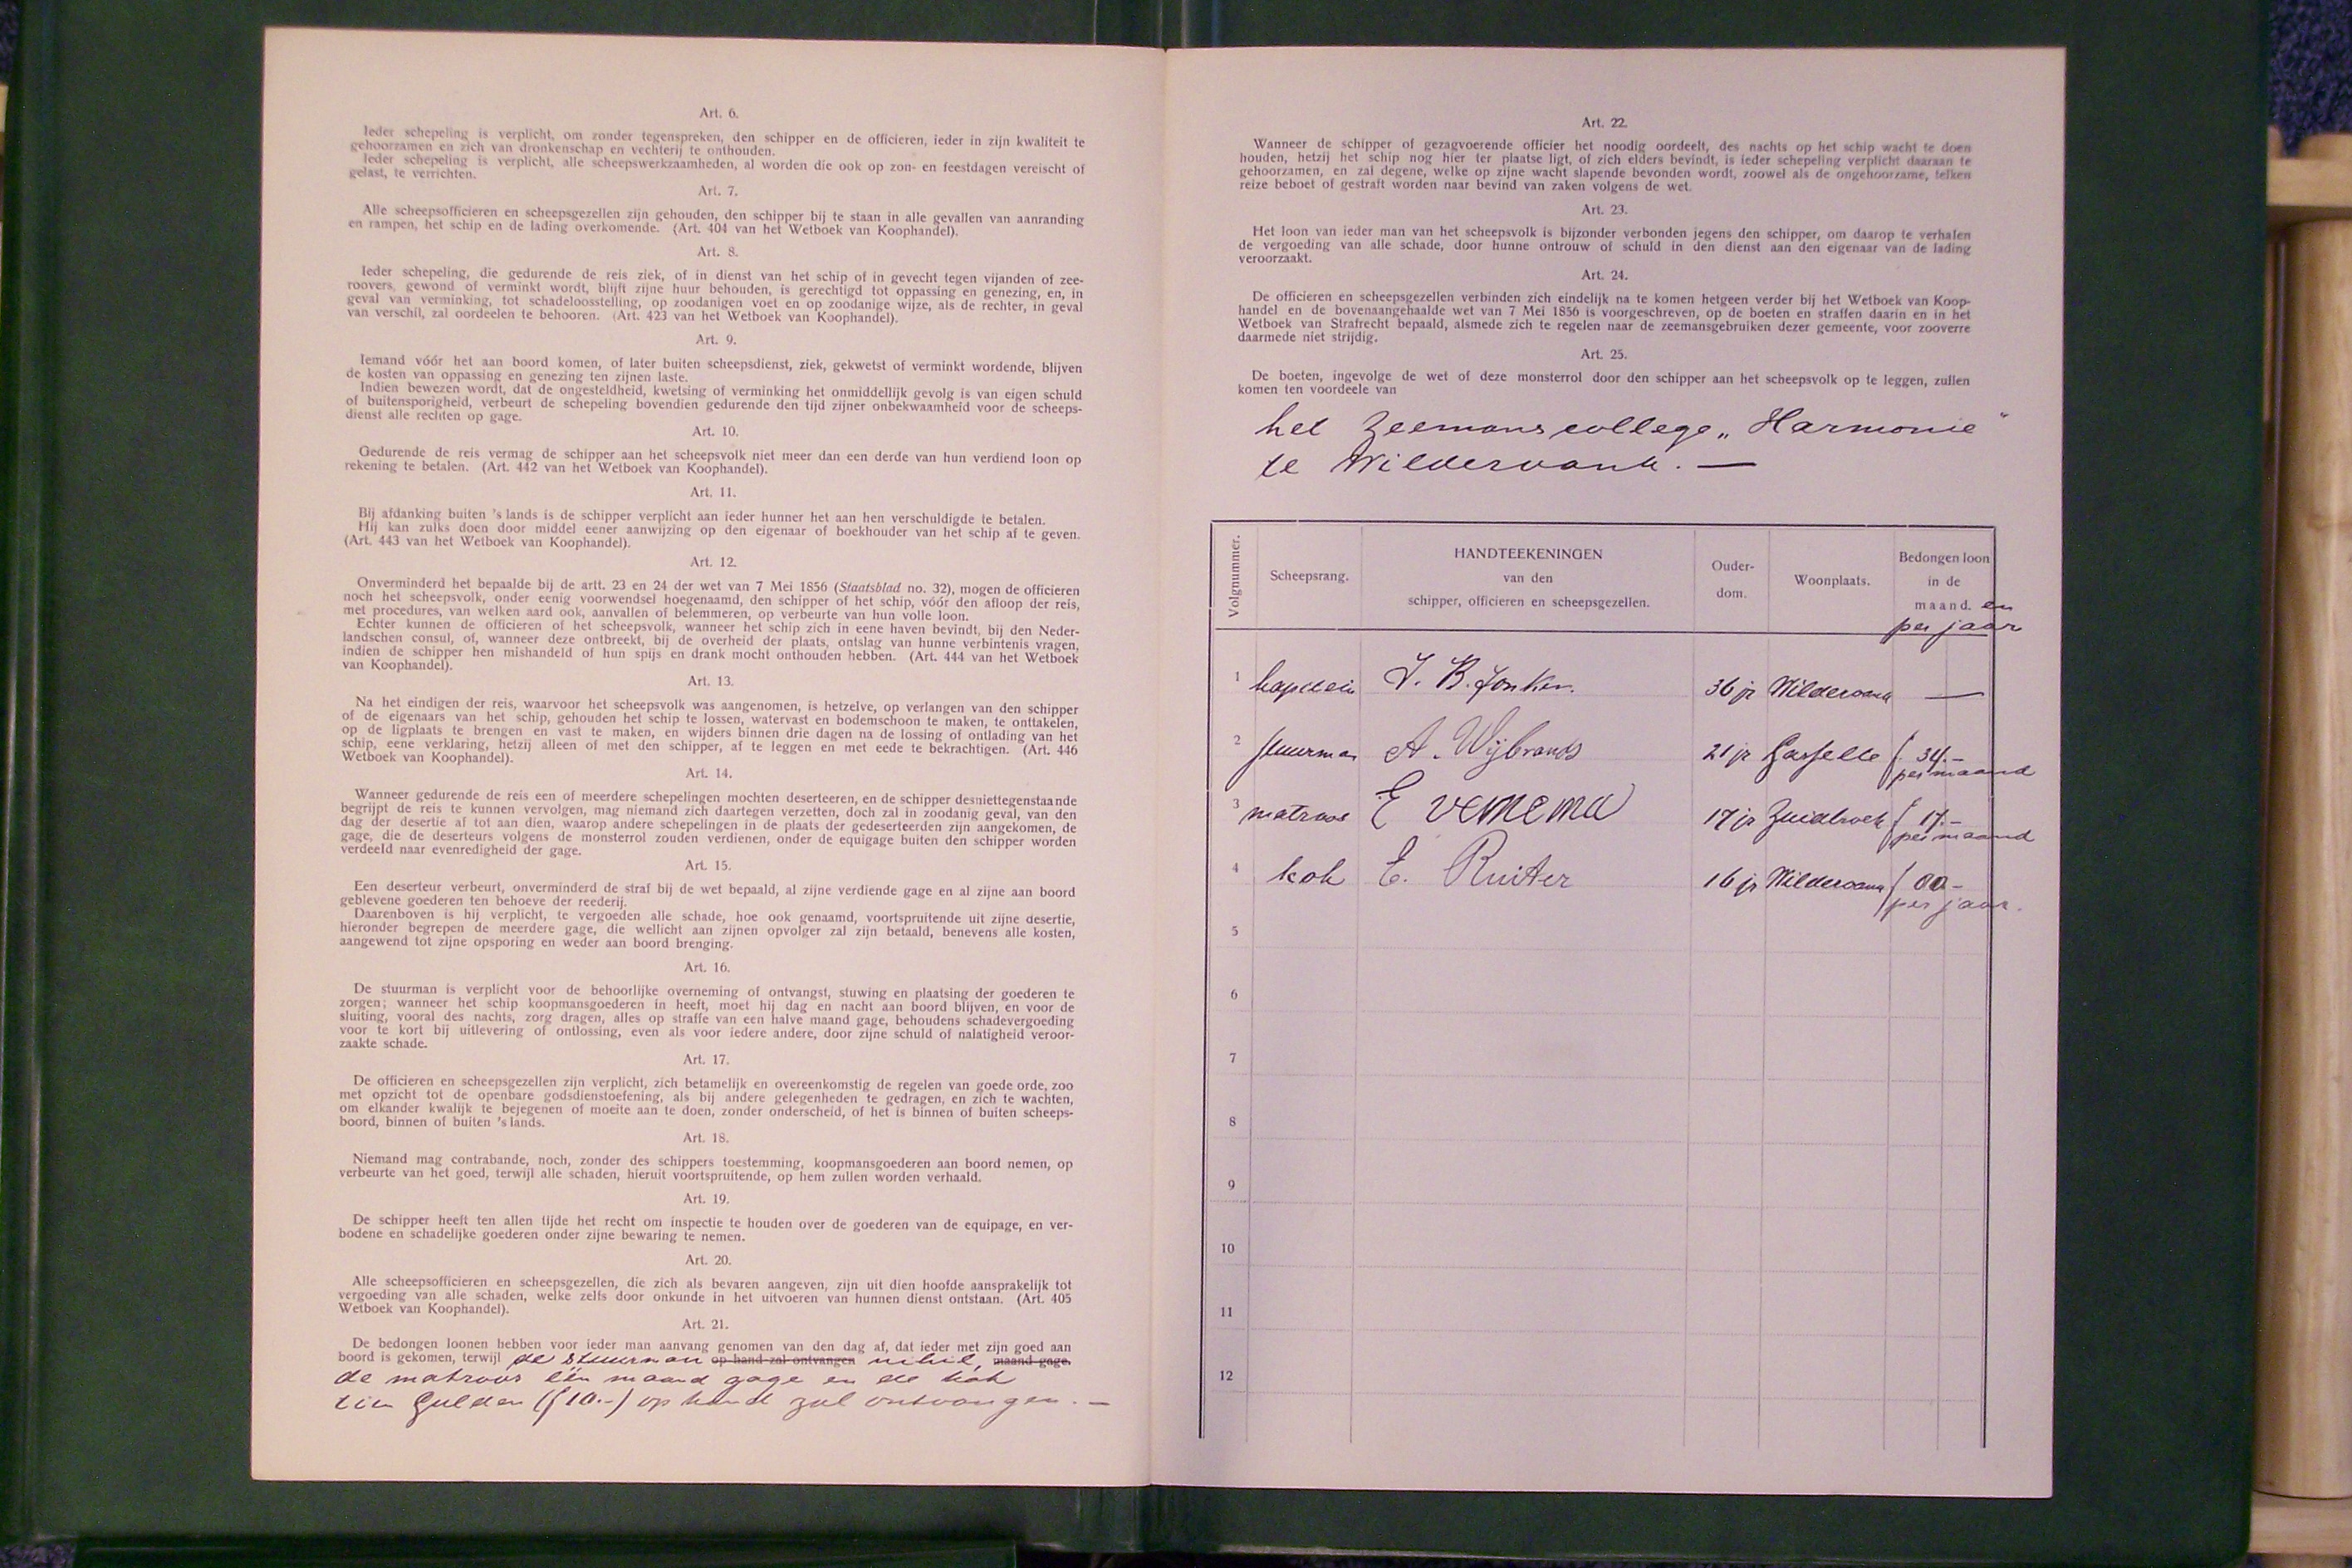 Art. 6.
Ieder schepeling is verplicht, om zonder tegenspreken, den schipper en de officieren, ieder in zijn kwaliteit te
gehoorzamen en zich van dronkenschap en vechterij te onthouden.
Ieder schepeling is verplicht, alle scheepswerkzaamheden, al worden die ook op zon- en feestdagen vereischt of
gelast, te verrichten.
Art. 7.
Alle scheepsofficieren en scheepsgezellen zijn gehouden, den schipper bij te staan in alle gevallen van aanranding
en rampen, het schip en de lading overkomende. (Art. 404 van het Wetboek van Koophandel).
Art. 8.
Ieder schepeling, die gedurende de reis ziek, of in dienst van het schip of in gevecht tegen vijanden of zee-
roovers, gewond of verminkt wordt, blijft zijne huur behouden, is gerechtigd tot oppassing en genezing, en, in
geval van verminking, tot schadeloosstelling, op zoodanigen voet en op zoodanige wijze, als de rechter, in geval
van verschil, zal oordeelen te behooren. (Art. 423 van het Wetboek van Koophandel).
Art. 9.
Iemand vóór het aan boord komen, of later buiten scheepsdienst, ziek, gekwetst of verminkt wordende, blijven
de kosten van oppassing en genezing ten zijnen laste.
Indien bewezen wordt, dat de ongesteldheid, kwetsing of verminking het onmiddellijk gevolg is van eigen schuld
of buitensporigheid, verbeurt de schepeling bovendien gedurende den tijd zijner onbekwaamheid voor de scheeps-
dienst alle rechten op gage.
Art. 10.
Gedurende de reis vermag de schipper aan het scheepsvolk niet meer dan een derde van hun verdiend loon op
rekening te betalen. (Art. 442 van het Wetboek van Koophandel).
Art. 11.
Bij afdanking buiten 's lands is de schipper verplicht aan ieder hunner het aan hen verschuldigde te betalen.
Hij kan zulks doen door middel eener aanwijzing op den eigenaar of boekhouder van het schip af te geven.
(Art. 443 van het Wetboek van Koophandel).
Art. 12.
Onverminderd het bepaalde bij de artt. 23 en 24 der wet van 7 Mei 1856 (Staatsblad no. 32), mogen de officieren
noch het scheepsvolk, onder eenig voorwendsel hoegenaamd, den schipper of het schip, vóór den afloop der reis,
met procedures, van welken aard ook, aanvallen of belemmeren, op verbeurte van hun volle loon.
Echter kunnen de officieren of het scheepsvolk, wanneer het schip zich in eene haven bevindt, bij den Neder-
landschen consul, of, wanneer deze ontbreekt, bij de overheid der plaats, ontslag van hunne verbintenis vragen,
indien de schipper hen mishandeld of hun spijs en drank mocht onthouden hebben. (Art. 444 van het Wetboek
van Koophandel).
Art. 13.
Na het eindigen der reis, waarvoor het scheepsvolk was aangenomen, is hetzelve, op verlangen van den schipper
of de eigenaars van het schip, gehouden het schip te lossen, watervast en bodemschoon te maken, te onttakelen,
op de ligplaats te brengen en vast te maken, en wijders binnen drie dagen na de lossing of ontlading van het
schip, eene verklaring, hetzij alleen of met den schipper, af te leggen en met eede te bekrachtigen. (Art. 446
Wetboek van Koophandel).
Art. 14.
Wanneer gedurende de reis een of meerdere schepelingen mochten deserteeren, en de schipper desniettegenstaande
begrijpt de reis te kunnen vervolgen, mag niemand zich daartegen verzetten, doch zal in zoodanig geval, van den
dag der desertie af tot aan dien, waarop andere schepelingen in de plaats der gedeserteerden zijn aangekomen, de
gage, die de deserteurs volgens de monsterrol zouden verdienen, onder de equigage buiten den schipper worden
verdeeld naar evenredigheid der gage.
Art. 15.
Een deserteur verbeurt, onverminderd de straf bij de wet bepaald, al zijne verdiende gage en al zijne aan boord
geblevene goederen ten behoeve der reederij.
Daarenboven is hij verplicht, te vergoeden alle schade, hoe ook genaamd, voortspruitende uit zijne desertie,
hieronder begrepen de meerdere gage, die wellicht aan zijnen opvolger zal zijn betaald, benevens alle kosten,
aangewend tot zijne opsporing en weder aan boord brenging.
Art. 16.
De stuurman is verplicht voor de behoorlijke overneming of ontvangst, stuwing en plaatsing der goederen te
zorgen; wanneer het schip koopmansgoederen in heeft, moet hij dag en nacht aan boord blijven, en voor de
sluiting, vooral des nachts, zorg dragen, alles op straffe van een halve maand gage, behoudens schadevergoeding
voor te kort bij uitlevering of ontlossing, even als voor iedere andere, door zijne schuld of nalatigheid veroor-
zaakte schade.
Art. 17.
De officieren en scheepsgezellen zijn verplicht, zich betamelijk en overeenkomstig de regelen van goede orde, zoo
met opzicht tot de openbare godsdienstoefening, als bij andere gelegenheden te gedragen, en zich te wachten,
om elkander kwalijk te bejegenen of moeite aan te doen, zonder onderscheid, of het is binnen of buiten scheeps-
boord, binnen of buiten 's lands.
Art. 18.
Niemand mag contrabande, noch, zonder des schippers toestemming, koopmansgoederen aan boord nemen, op
verbeurte van het goed, terwijl alle schaden, hieruit voortspruitende, op hem zullen worden verhaald.
Art. 19.
De schipper heeft ten allen tijde het recht om inspectie te houden over de goederen van de equipage, en ver-
bodene en schadelijke goederen onder zijne bewaring te nemen.
Art. 20.
Alle scheepsofficieren en scheepsgezellen, die zich als bevaren aangeven, zijn uit dien hoofde aansprakelijk tot
vergoeding van alle schaden, welke zelfs door onkunde in het uitvoeren van hunnen dienst ontstaan. (Art. 405
Wetboek van Koophandel).
Art. 21.
De bedongen loonen hebben voor ieder man aanvang genomen van den dag af, dat ieder met zijn goed aan
boord is gekomen, terwijl de stuurman op hand zal ontvangen nihil, maand gage.
de matroos één maand gage en de kok
tien Gulden (f 10.-) op hand zal ontvangen. —
Art. 22.
Wanneer de schipper of gezagvoerende officier het noodig oordeelt, des nachts op het schip wacht te doen
houden, hetzij het schip nog hier ter plaatse ligt, of zich elders bevindt, is ieder schepeling verplicht daaraan te
gehoorzamen, en zal degene, welke op zijne wacht slapende bevonden wordt, zoowel als de ongehoorzame, telken
reize beboet of gestraft worden naar bevind van zaken volgens de wet.
Art. 23.
Het loon van ieder man van het scheepsvolk is bijzonder verbonden jegens den schipper, om daarop te verhalen
de vergoeding van alle schade, door hunne ontrouw of schuld in den dienst aan den eigenaar van de lading
veroorzaakt.
Art. 24.
De officieren en scheepsgezellen verbinden zich eindelijk na te komen hetgeen verder bij het Wetboek van Koop-
handel en de bovenaangehaalde wet van 7 Mei 1856 is voorgeschreven, op de boeten en straffen daarin en in het
Wetboek van Strafrecht bepaald, alsmede zich te regelen naar de zeemansgebruiken dezer gemeente, voor zooverre
daarmede niet strijdig.
Art. 25.
De boeten, ingevolge de wet of deze monsterrol door den schipper aan het scheepsvolk op te leggen, zullen
komen ten voordeele van
het Zeemanscollege „Harmonie"
te Wildervank. —
Volgnummer.
Scheepsrang.
HANDTEEKENINGEN
van den
schipper, officieren en scheepsgezellen.
Ouder-
dom.
Woonplaats.
Bedongen loon
in de
maand. en
per jaar
1 kapitein J. B. Jonker. 36 jr Wildervank —
2 stuurman A. Wijbrands 21 jr Gasselte f 34.-
per maand
3 matroos E venema 17 jr Zuidbroek f 17.-
per maand
4 kok E. Ruiter 16 jr Wildervank f
per jaar.
5
6
7
8
9
10
11
12